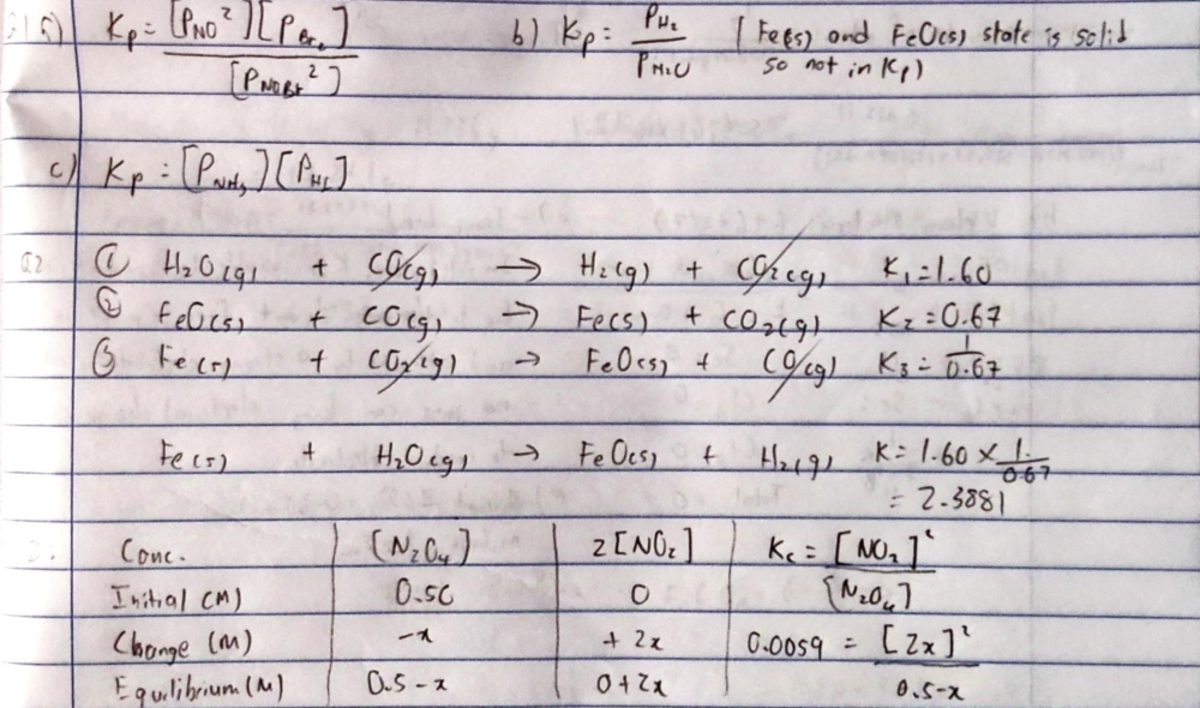 Q1 a) Kp = [P_NO²][P_Br₂] / [P_NOBr²]
b) Kp = P_H₂ / P_H₂O [Fe(s) and FeO(s) state is solid
so not in Kp)
c) Kp = [P_NH₃][P_HI]
Q2 ① H₂O(g) + CO(g) → H₂(g) + CO₂(g) K₁ = 1.60
② FeO(s) + CO(g) → Fe(s) + CO₂(g) K₂ = 0.67
③ Fe(s) + CO₂(g) → FeO(s) + CO(g) K₃ = 1/0.67
Fe(s) + H₂O(g) → FeO(s) + H₂(g) K = 1.60 × 1/0.67
= 2.3881
3. Conc. [N₂O₄] 2[NO₂] Kc = [NO₂]² / [N₂O₄]
Initial (M) 0.50 0
Change (M) -x + 2x 0.0059 = [2x]² / 0.5-x
Equilibrium (M) 0.5-x 0+2x